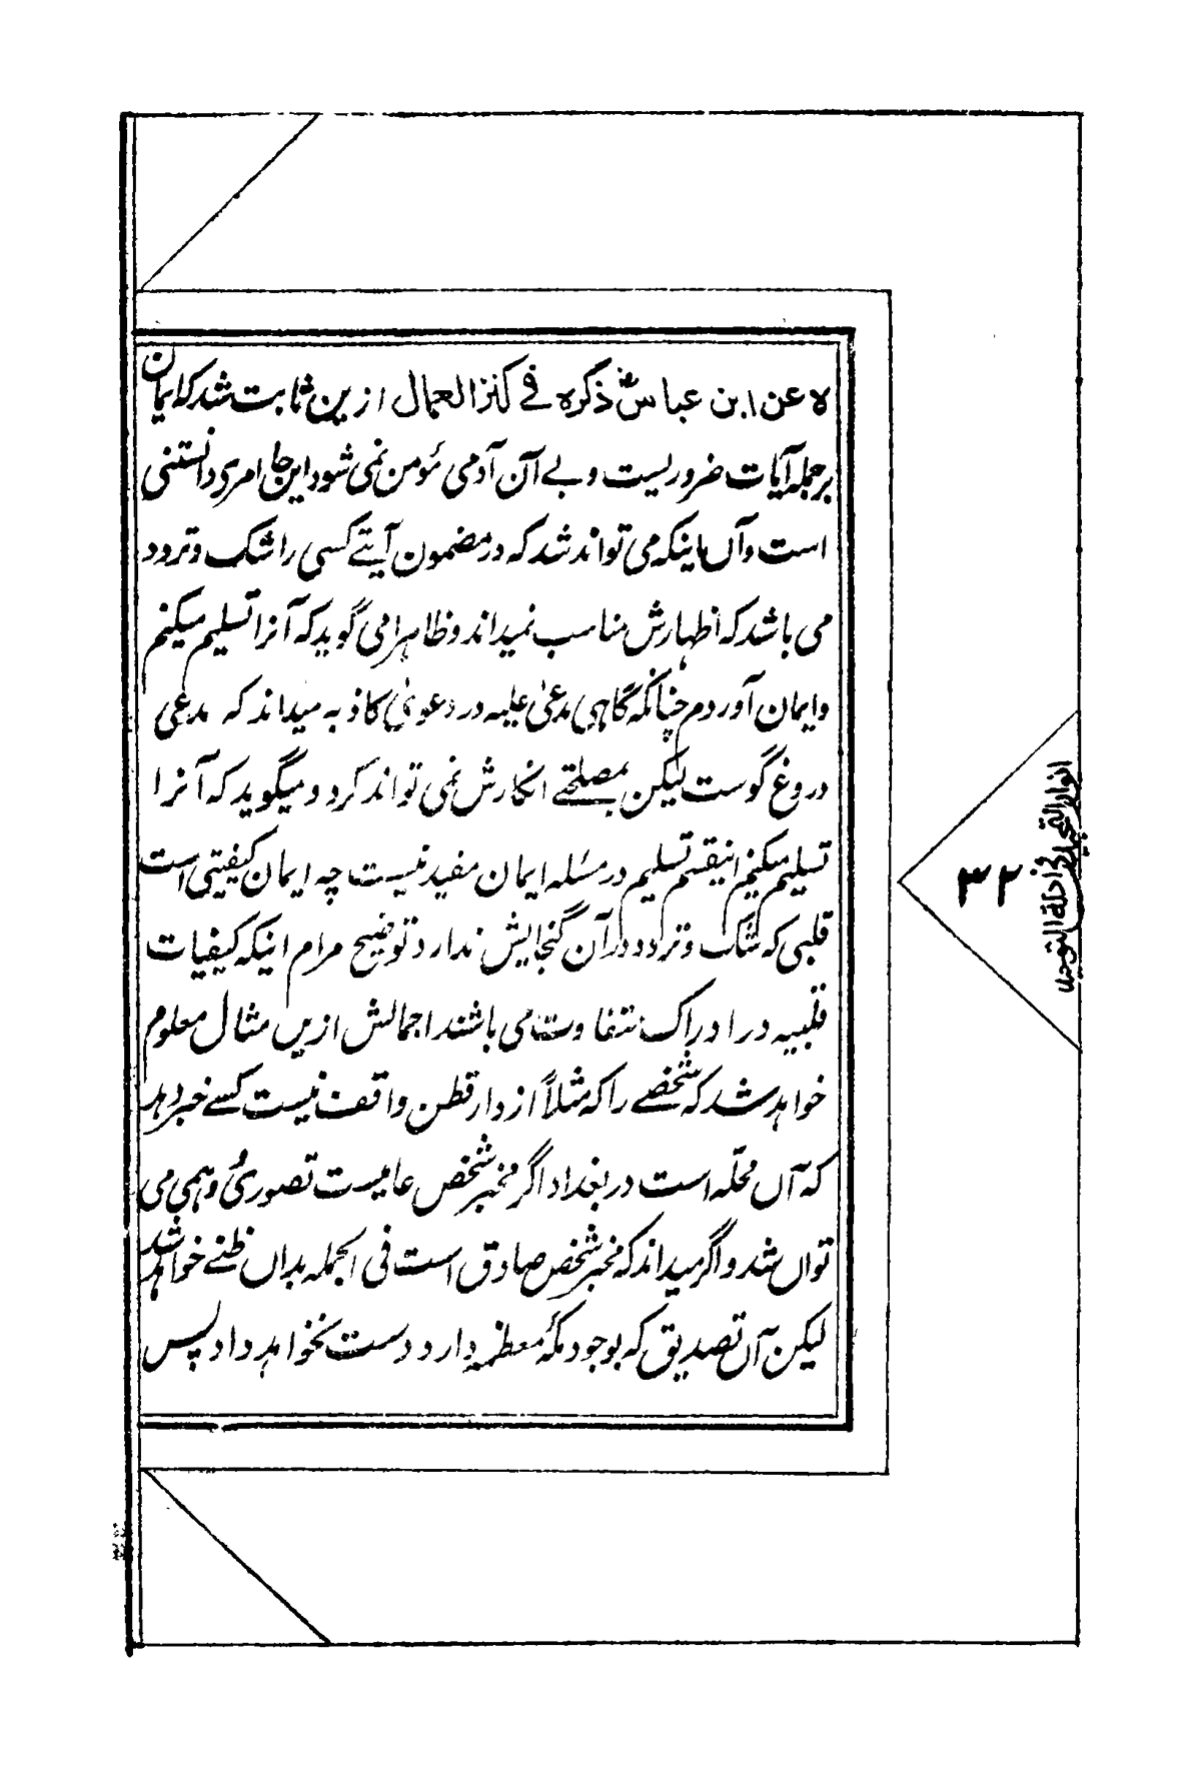 ہ عن ابن عباسؓ ذکره فے کنز العمال ازین ثابت شد که ایمان
بر جمله آیات ضروریست و بے آن آدمی مؤمن نمی شود این جا امری دانستنی
است وآں اینکه می تواند شد که در مضمون آیتے کسی را شک و تردد
می باشد که اظهارش مناسب نمیداند و ظاهرا می گوید که آنرا تسلیم میکنم
وایمان آوردم چنانکه گاهی مدعیٰ علیه در دعویٰ کاذبه میداند که مدعی
دروغ گوست لیکن بمصلحتے انکارش نمی تواند کرد و میگوید که آنرا
تسلیم میکنم اینقسم تسلیم در مسئله ایمان مفید نیست چه ایمان کیفیتی است
قلبی که شک و تردد در آن گنجایش ندارد توضیح مرام اینکه کیفیات
قلبیه در ادراک متفاوت می باشند اجمالش ازیں مثال معلوم
خواهد شد که شخصے را که مثلاً از دار قطن واقف نیست کسے خبر دهد
که آں محلّه است در بغداد اگر مخبر شخص عامیست تصوری وهمی می
تواں شد و اگر میداند که مخبر شخص صادق است فی الجمله بداں ظنے خواهد شد
لیکن آں تصدیق که بوجود مکۂ معظمه دارد دست نخواهد داد پس
۳۲
انوار التمجید فی ادلة التوحید